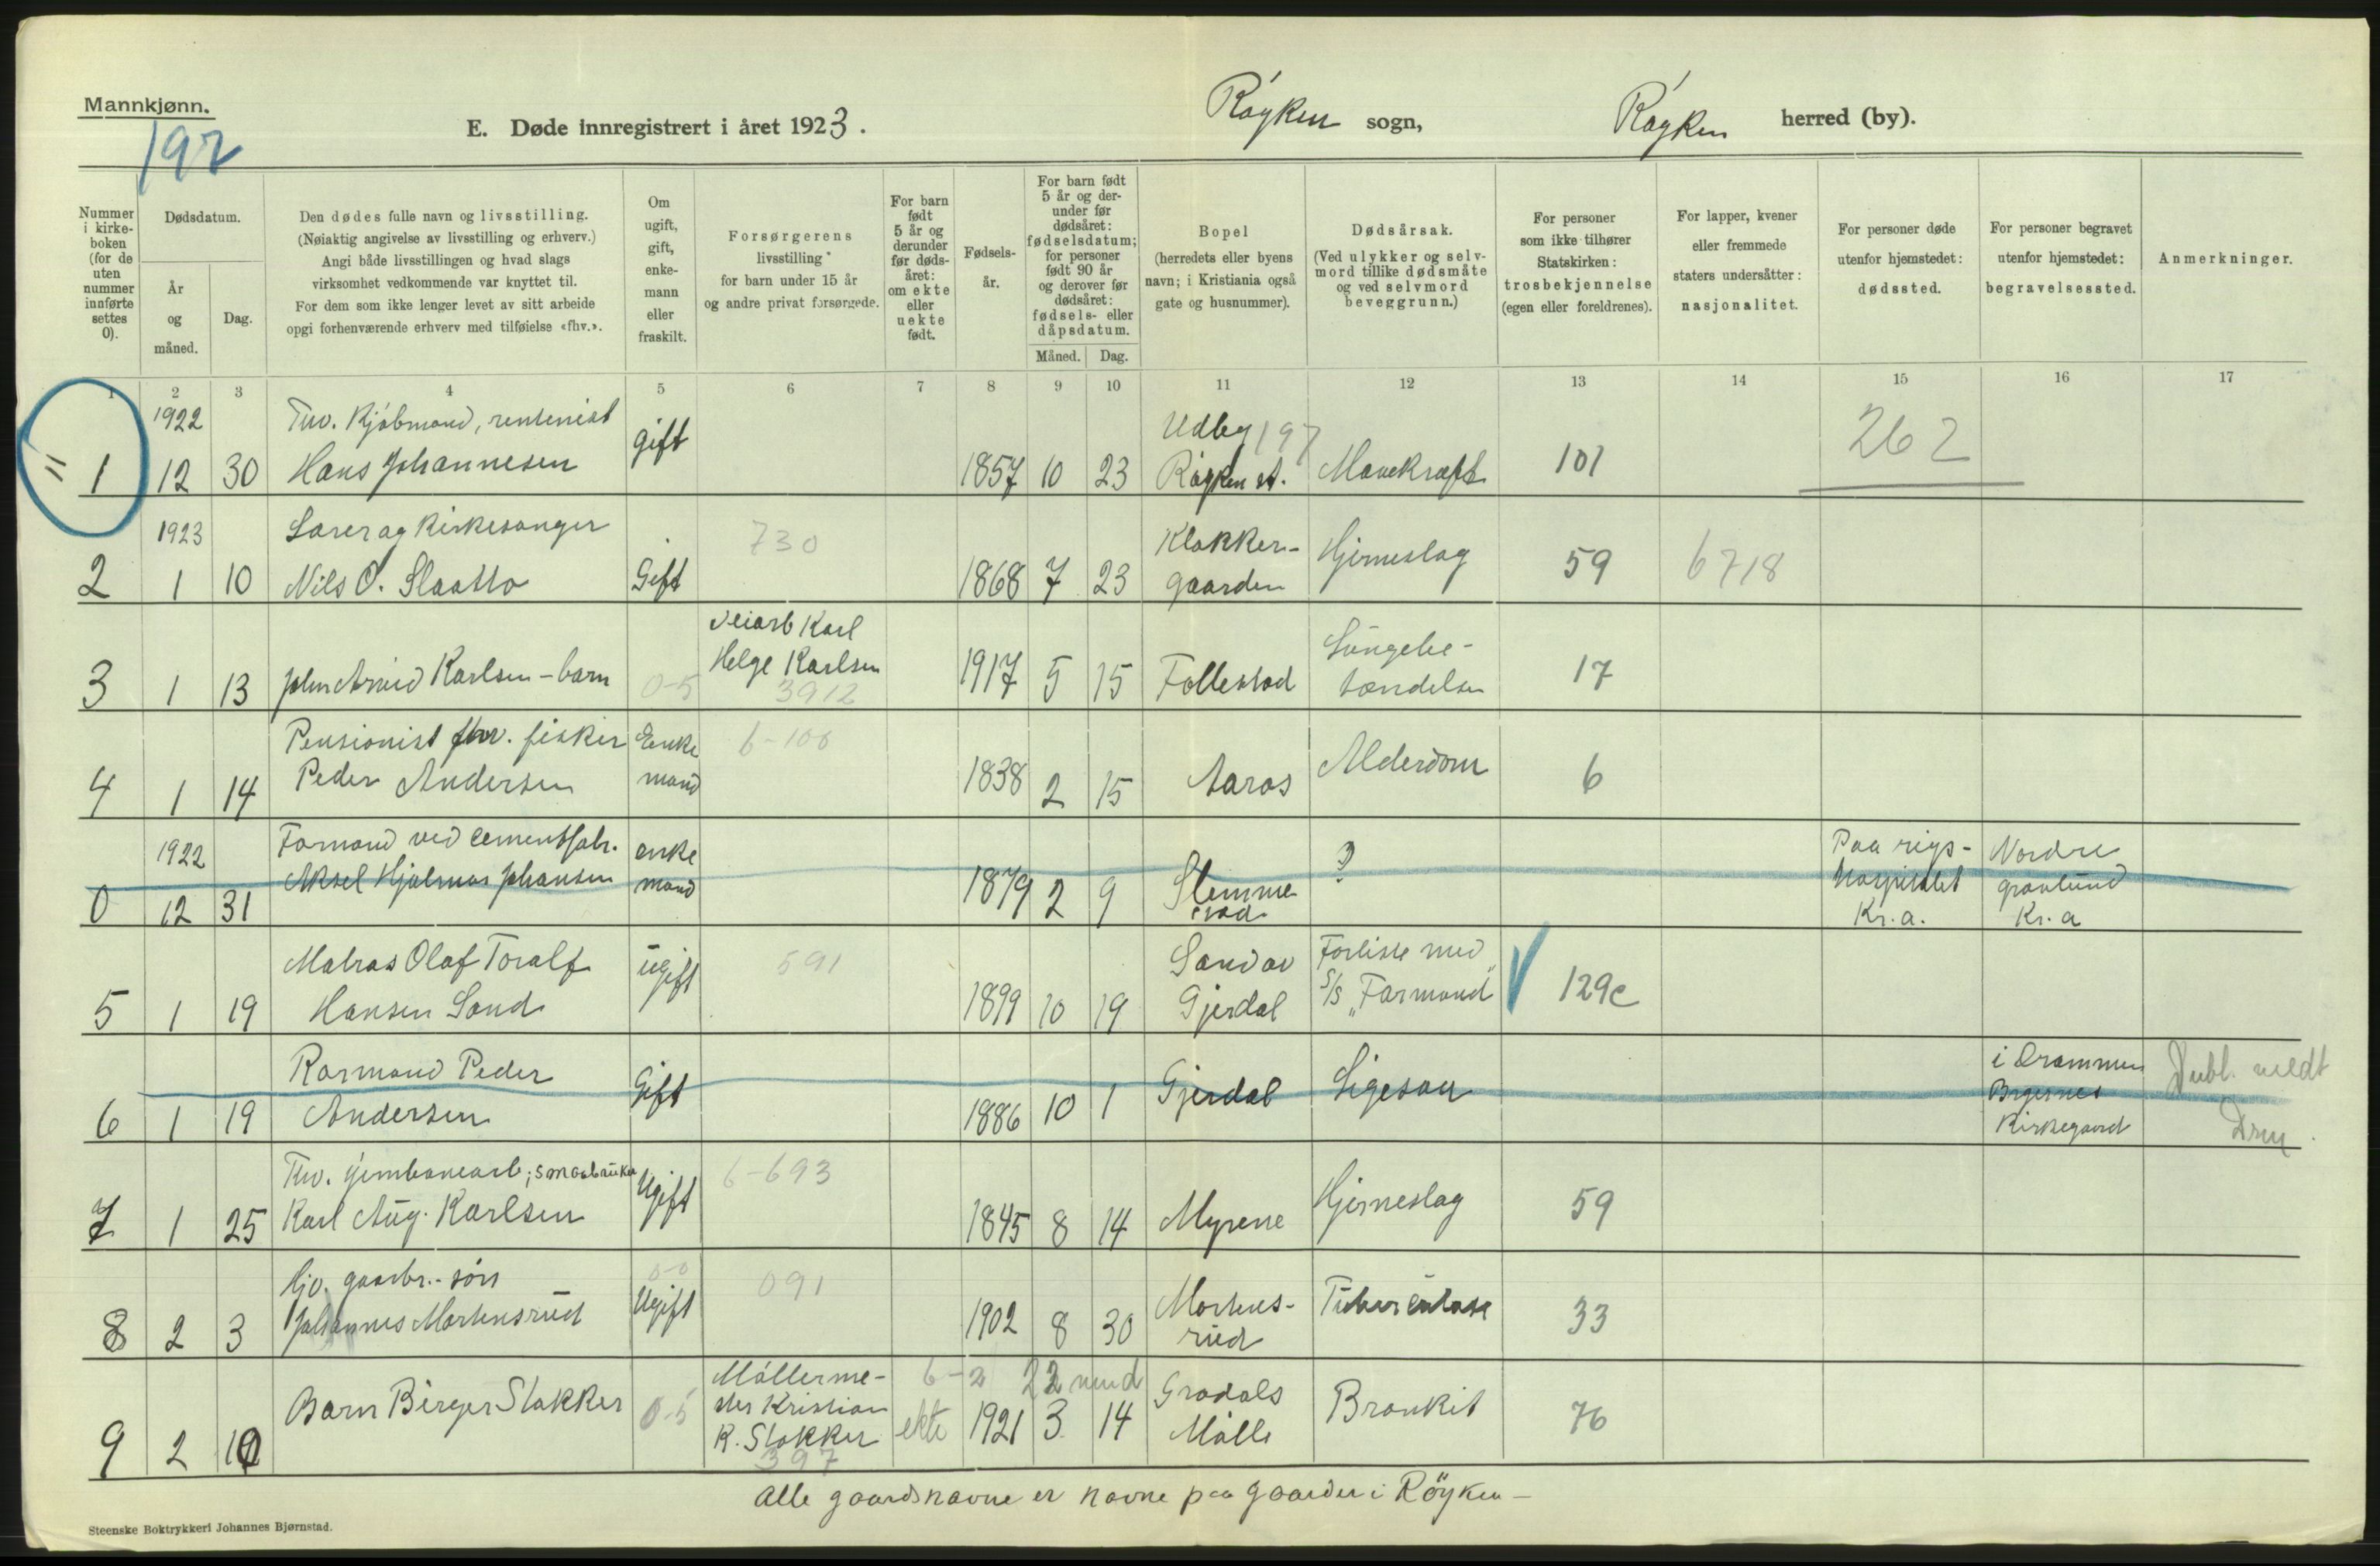 Mannkjønn.
192
E. Døde innregistrert i året 1923.
Røyken sogn,
Røyken herred (by).
Nummer i kirke-boken (for de uten nummer innførte settes 0).
Dødsdatum.
År og måned.
Dag.
Den dødes fulle navn og livsstilling.
(Nøiaktig angivelse av livsstilling og erhverv.)
Angi både livsstillingen og hvad slags
virksomhet vedkommende var knyttet til.
For dem som ikke lenger levet av sitt arbeide
opgi forhenværende erhverv med tilføielse «fhv.».
Om ugift, gift, enke-mann eller fraskilt.
Forsørgerens
livsstilling
for barn under 15 år
og andre privat forsørgede.
For barn født 5 år og derunder før døds-året: om ekte eller uekte født.
Fødsels-år.
For barn født 5 år og der-under før dødsåret: fødselsdatum; for personer født 90 år og derover før dødsåret: fødsels- eller dåpsdatum.
Måned. Dag.
Bopel
(herredets eller byens
navn; i Kristiania også
gate og husnummer).
Dødsårsak.
(Ved ulykker og selv-
mord tillike dødsmåte
og ved selvmord
beveggrunn.)
For personer
som ikke tilhører
Statskirken:
trosbekjennelse
(egen eller foreldrenes).
For lapper, kvener
eller fremmede
staters undersåtter:
nasjonalitet.
For personer døde
utenfor hjemstedet:
dødssted.
For personer begravet
utenfor hjemstedet:
begravelsessted.
Anmerkninger.
1 2 3 4 5 6 7 8 9 10 11 12 13 14 15 16 17
1922 Fhv. Kjøbmand, rentenist Gift Udby 197 262
1 12 30 Hans Johannesen 1857 10 23 Røyken st. Mavekræft 101
1923 Lærer og Kirkesanger 730 Klokker- Hjerneslag
2 1 10 Nils O. Slaatto Gift 1868 7 23 gaarden 59 6718
Veiarb Karl Lungebe-
3 1 13 John Arvid Karlsen - barn 0-5 Helge Karlsen 1917 5 15 Follestad tændelse 17
3912
Pensionist fhv. fisker Enke 6-100
4 1 14 Peder Andersen mand 1838 2 15 Aaros Alderdom 6
1922 Formand ved cementfabr. enke ? Paa rigs- Nordre
Aksel Hjalmar Johansen mand 1879 2 9 Slemme hospitalet gravlund
0 12 31 stad Kr.a. Kr.a
Matros Olaf Toralf ugift 591 Sand av Forliste med
5 1 19 Hansen Sand 1899 10 19 Gjerdal S/S "Farmand" 129c
Rormand Peder Gift Gjerdal Ligesaa i Drammen Dubl. meldt
6 1 19 Andersen 1886 10 1 Bragernes
Kirkegaard Drm.
Fhv. jernbanearb; smaabruker Ugift 6-693 Hjerneslag
7 1 25 Karl Aug. Karlsen 1845 8 14 Myrene 59
Hjv. gaarbr.- søn 091 Mortens- Tuberkulose
8 2 3 Johannes Mortensrud Ugift 1902 8 30 rud 33
Møllerme- 6-2 22 mnd
Barn Birger Slokker 0-5 ster Kristian ekte 1921 3 14 Grodals Bronkit
9 2 10 K. Slokker Mølle 76
397
Alle gaardsnavne er navne paa gaarder i Röyken -
Steenske Boktrykkeri Johannes Bjørnstad.